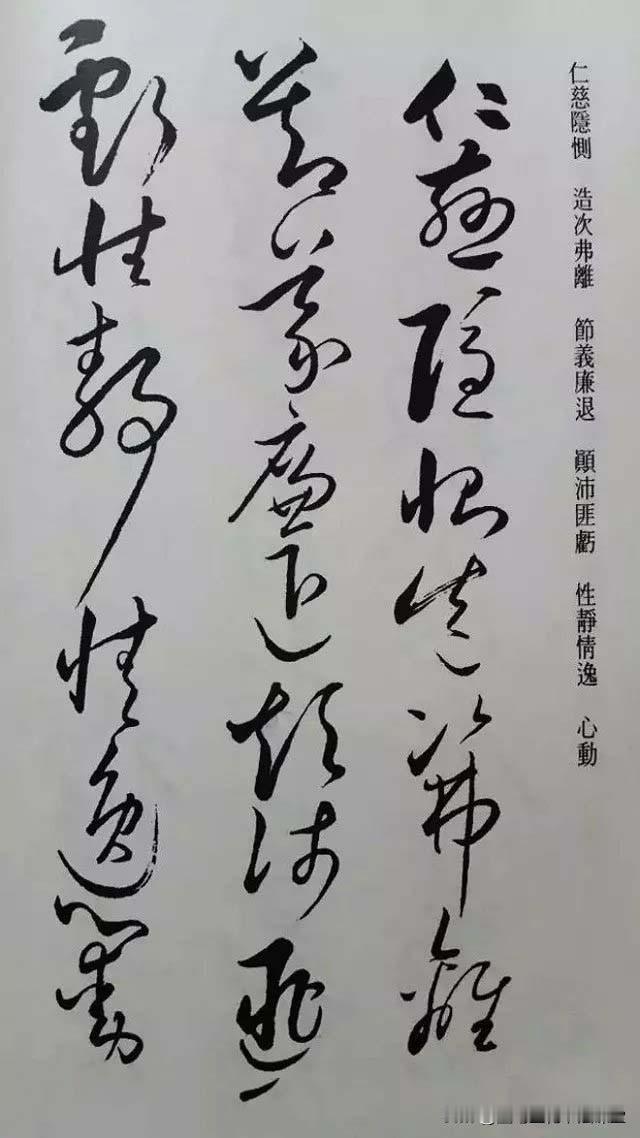 仁慈隱惻 造次弗離 節義廉退 顛沛匪虧 性靜情逸 心動
仁慈隱惻造次弗離
節義廉退顛沛匪
虧性靜情逸心動